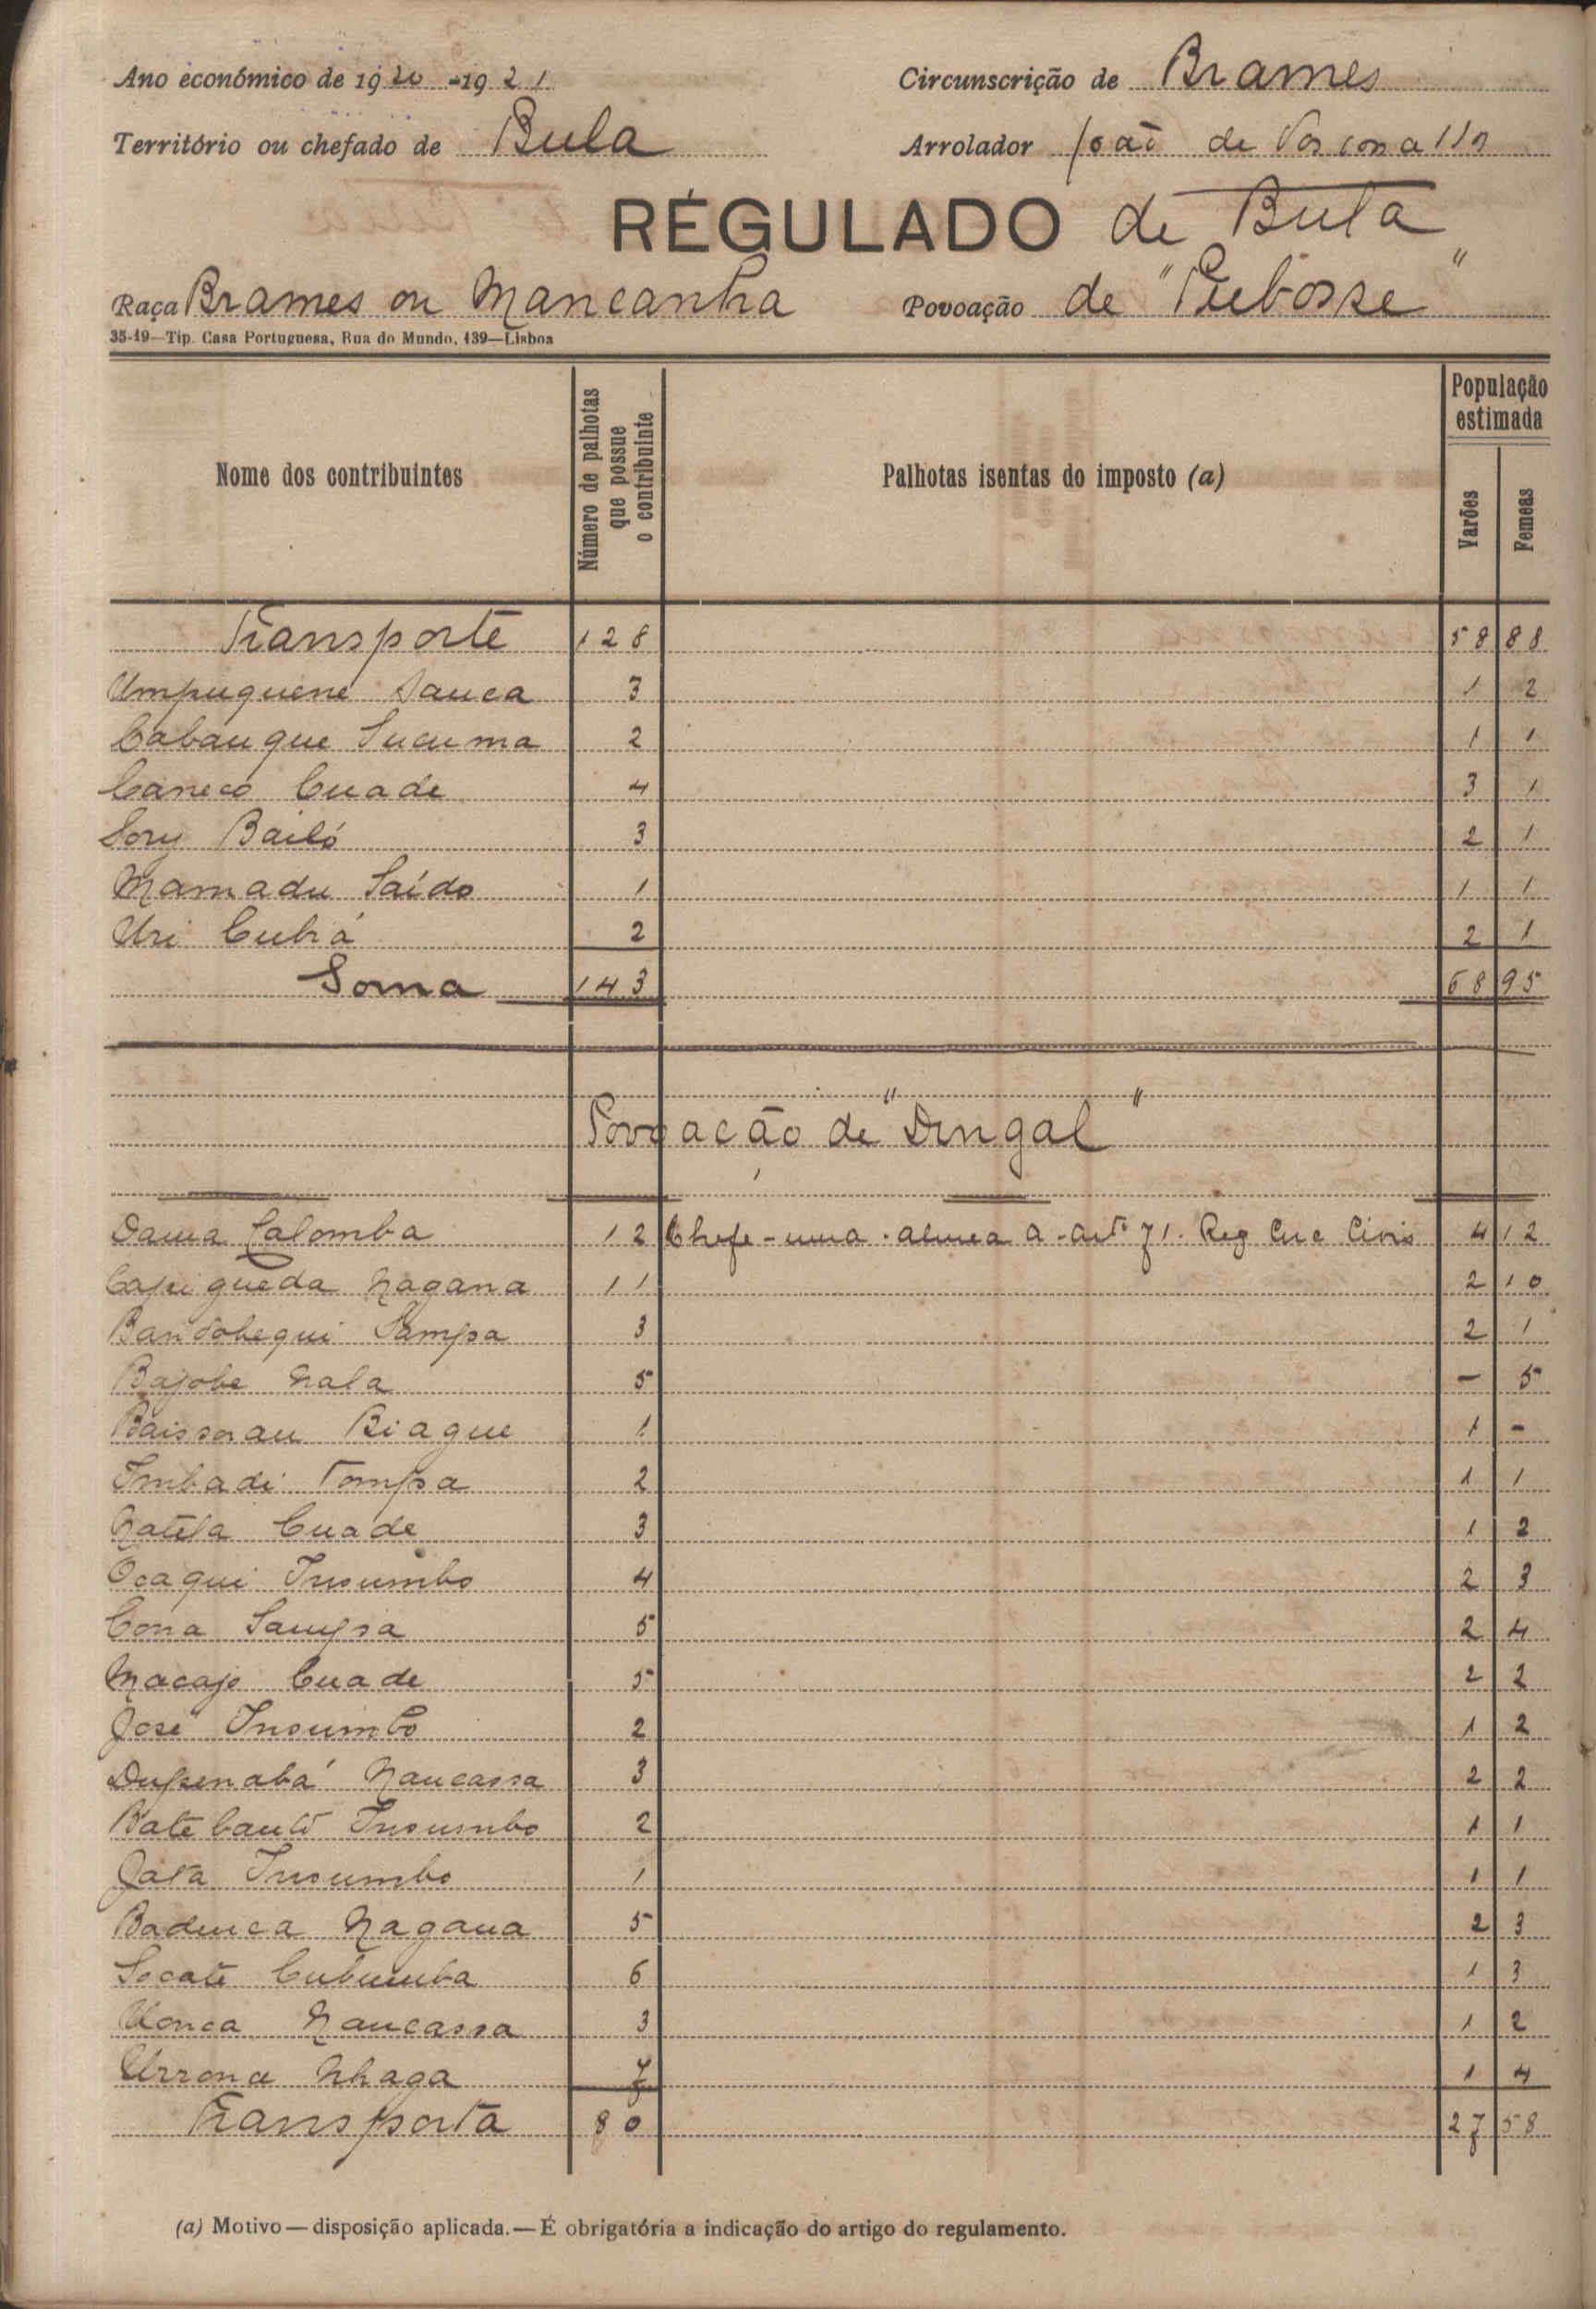 Ano económico de 1920-1921
Circunscrição de Brames
Território ou chefado de Bula
Arrolador João de Vasconcellos
RÉGULADO de Bula
Raça Brames ou Mancanha
Povoação de "Pubosse"
35-19—Tip. Casa Portuguesa, Rua do Mundo, 139—Lisboa
Nome dos contribuintes
Número de palhotas que possue o contribuinte
Palhotas isentas do imposto (a)
População estimada
Varões
Femeas
Transporte 128 58 88
Umpuquene Sauca 3 1 2
Cabauque Sucuma 2 1 1
Caneco Cuade 4 3 1
Sory Bailó 3 2 1
Mamadu Saído 1 1 1
Uri Cubrá 2 2 1
Soma 143 68 95
Povoacão de "Dungal"
Daua Calomba 12 Chefe - uma - alinea a - artº 71. Reg Circ Civis 4 12
Capigueda Nagana 11 2 10
Bandohequi Sampa 3 2 1
Bajobe Nala 5 - 5
Baissorau Biague 1 1 -
Imbadi Tompa 2 1 1
Natela Cuade 3 1 2
Ocaqui Insumbo 4 2 3
Cona Sampsa 5 2 4
Macajo Cuade 5 2 2
José Insumbo 2 1 2
Dupenabá Naucassa 3 2 2
Batebautó Insumbo 2 1 1
Jata Insumbo 1 1 1
Baduca Nagaua 5 2 3
Socate Cubumba 6 1 3
Uonca Naucassa 3 1 2
Urrona Nhaga 7 1 4
Transporta 80 27 58
(a) Motivo—disposição aplicada.—É obrigatória a indicação do artigo do regulamento.